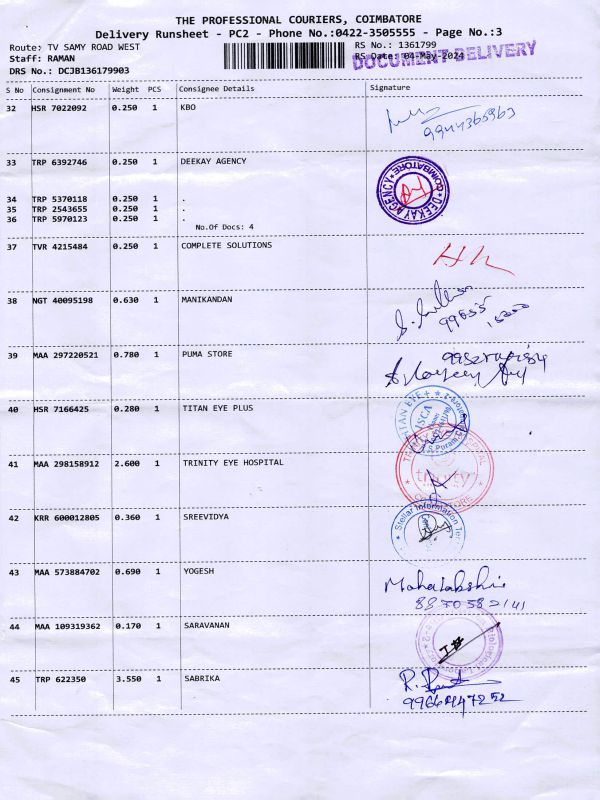 THE PROFESSIONAL COURIERS, COIMBATORE
Delivery Runsheet - PC2 - Phone No.:0422-3505555 - Page No.:3
Route: TV SAMY ROAD WEST
RS No.: 1361799
Staff: RAMAN
RS Date: 04-May-2024
DOCUMENT DELIVERY
DRS No.: DCJB136179903
S No Consignment No Weight PCS Consignee Details Signature
32 HSR 7022092 0.250 1 KBO
9944365963
33 TRP 6392746 0.250 1 DEEKAY AGENCY
DEEKAY AGENCY COIMBATORE
34 TRP 5370118 0.250 1 .
35 TRP 2543655 0.250 1 .
36 TRP 5970123 0.250 1 .
No.Of Docs: 4
37 TVR 4215484 0.250 1 COMPLETE SOLUTIONS
38 NGT 40095198 0.630 1 MANIKANDAN
39 MAA 297220521 0.780 1 PUMA STORE
40 HSR 7166425 0.280 1 TITAN EYE PLUS
TITAN EYE+
41 MAA 298158912 2.600 1 TRINITY EYE HOSPITAL
trinity
42 KRR 600012805 0.360 1 SREEVIDYA
Stellar Information
43 MAA 573884702 0.690 1 YOGESH
Mahalakshmi
8870582141
44 MAA 109319362 0.170 1 SARAVANAN
45 TRP 622350 3.550 1 SABRIKA